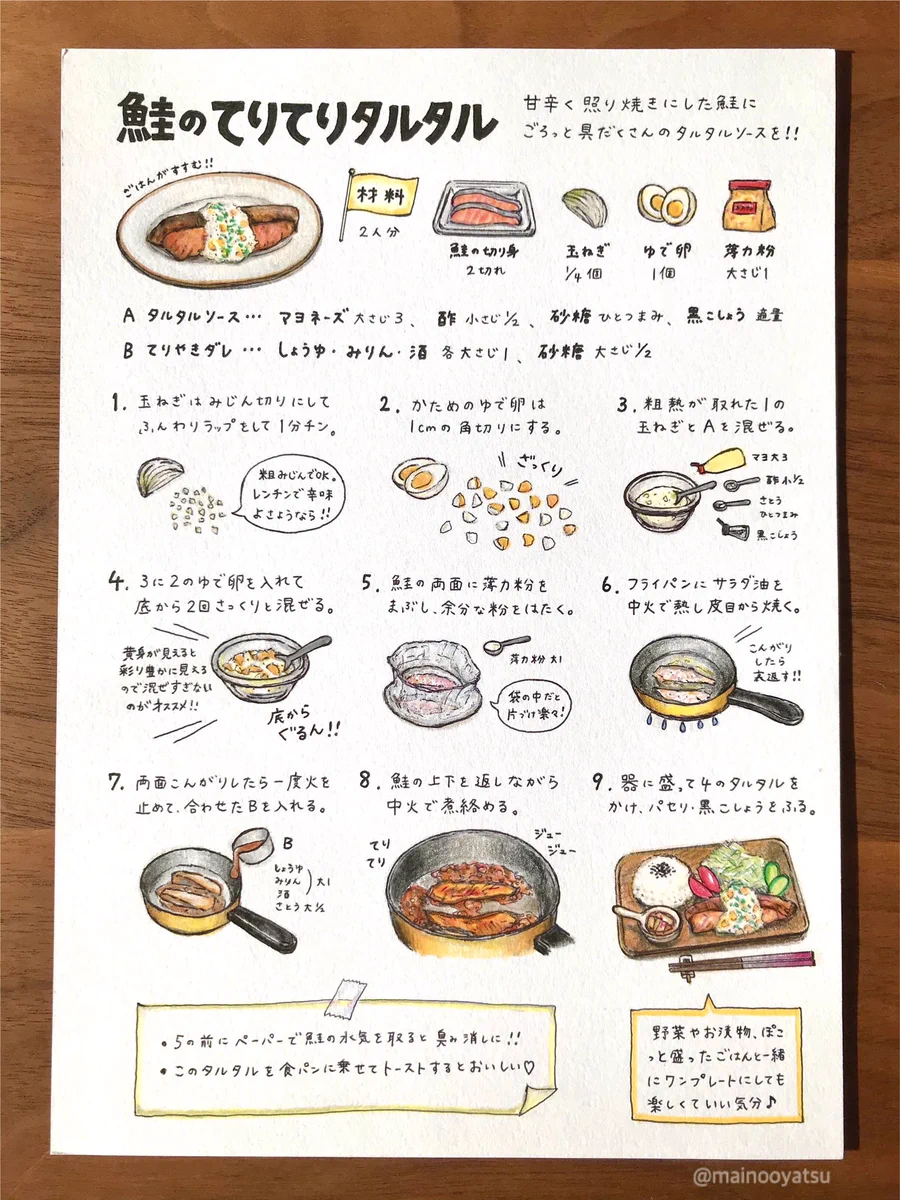 鮭のてりてりタルタル
甘辛く照り焼きにした鮭に
ごろっと具だくさんのタルタルソースを!!
ごはんがすすむ!!
材料
2人分
鮭の切り身
2切れ
玉ねぎ
1/4個
ゆで卵
1個
薄力粉
大さじ1
A タルタルソース… マヨネーズ 大さじ3、酢 小さじ1/2、砂糖 ひとつまみ、黒こしょう 適量
B てりやきダレ … しょうゆ・みりん・酒 各大さじ1、砂糖 大さじ1/2
1. 玉ねぎはみじん切りにして
ふんわりラップをして1分チン。
粗みじんでOK。
レンチンで辛味
よさようなら!!
2. かためのゆで卵は
1cmの角切りにする。
ざっくり
3. 粗熱が取れた1の
玉ねぎとAを混ぜる。
マヨ大3
酢小1/2
さとう
ひとつまみ
黒こしょう
4. 3に2のゆで卵を入れて
底から2回さっくりと混ぜる。
黄身が見えると
彩り豊かに見える
ので混ぜすぎない
のがオススメ!!
底から
ぐるん!!
5. 鮭の両面に薄力粉を
まぶし、余分な粉をはたく。
薄力粉大1
袋の中だと
片づけ楽々!
6. フライパンにサラダ油を
中火で熱し皮目から焼く。
こんがり
したら
裏返す!!
7. 両面こんがりしたら一度火を
止めて、合わせたBを入れる。
B
しょうゆ
みりん
酒
大1
さとう大1/2
8. 鮭の上下を返しながら
中火で煮絡める。
てり
てり
ジュー
ジュー
9. 器に盛って4のタルタルを
かけ、パセリ・黒こしょうをふる。
•5の前にペーパーで鮭の水気を取ると臭み消しに!!
•このタルタルを食パンに乗せてトーストするとおいしい♡
野菜やお漬物、ぽこ
っと盛ったごはんと一緒
にワンプレートにしても
楽しくていい気分♪
@mainooyatsu